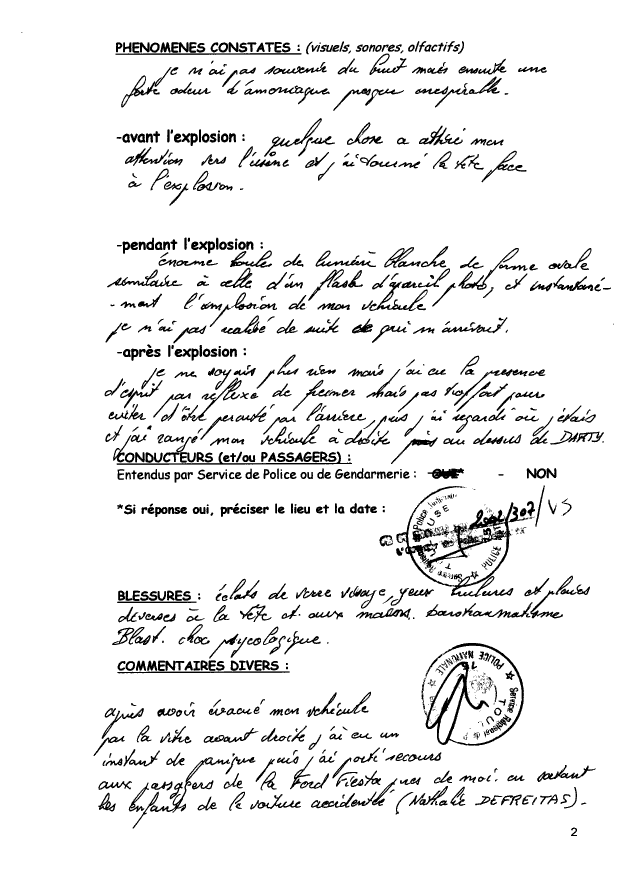 PHENOMENES CONSTATES : (visuels, sonores, olfactifs)
je n'ai pas souvenir du bruit mais ensuite une
forte odeur d'amoniaque presque irrespirable.
-avant l'explosion : quelque chose a attiré mon
attention vers l'usine et j'ai tourné la tête face
à l'explosion.
-pendant l'explosion :
énorme boule de lumière blanche de forme ovale
similaire à celle d'un flash d'appareil photo, et instantané-
-ment l'implosion de mon vehicule
je n'ai pas realisé de suite ce qui m'arrivait.
-après l'explosion :
je ne voyais plus rien mais j'ai eu la presence
d'esprit par reflexe de freiner mais pas trop fort pour
eviter d'être percuté par l'arrière, puis j'ai regardé où j'étais
et j'ai rangé mon vehicule à droite au dessus de DARTY.
CONDUCTEURS (et/ou PASSAGERS) :
Entendus par Service de Police ou de Gendarmerie : OUI* - NON
*Si réponse oui, préciser le lieu et la date :
2002/307/VS
BLESSURES : éclats de verre visage, yeux brulures et plaies
diverses à la tête et aux mains. barotraumatisme
Blast. choc psycologique.
COMMENTAIRES DIVERS :
POLICE NATIONALE
Service Régional de P
TOUL
après avoir évacué mon vehicule
par la vitre avant droite j'ai eu un
instant de panique puis j'ai porté secours
aux passagers de la Ford Fiesta pres de moi. en sortant
les enfants de la voiture accidentée (Nathalie DEFREITAS).
2